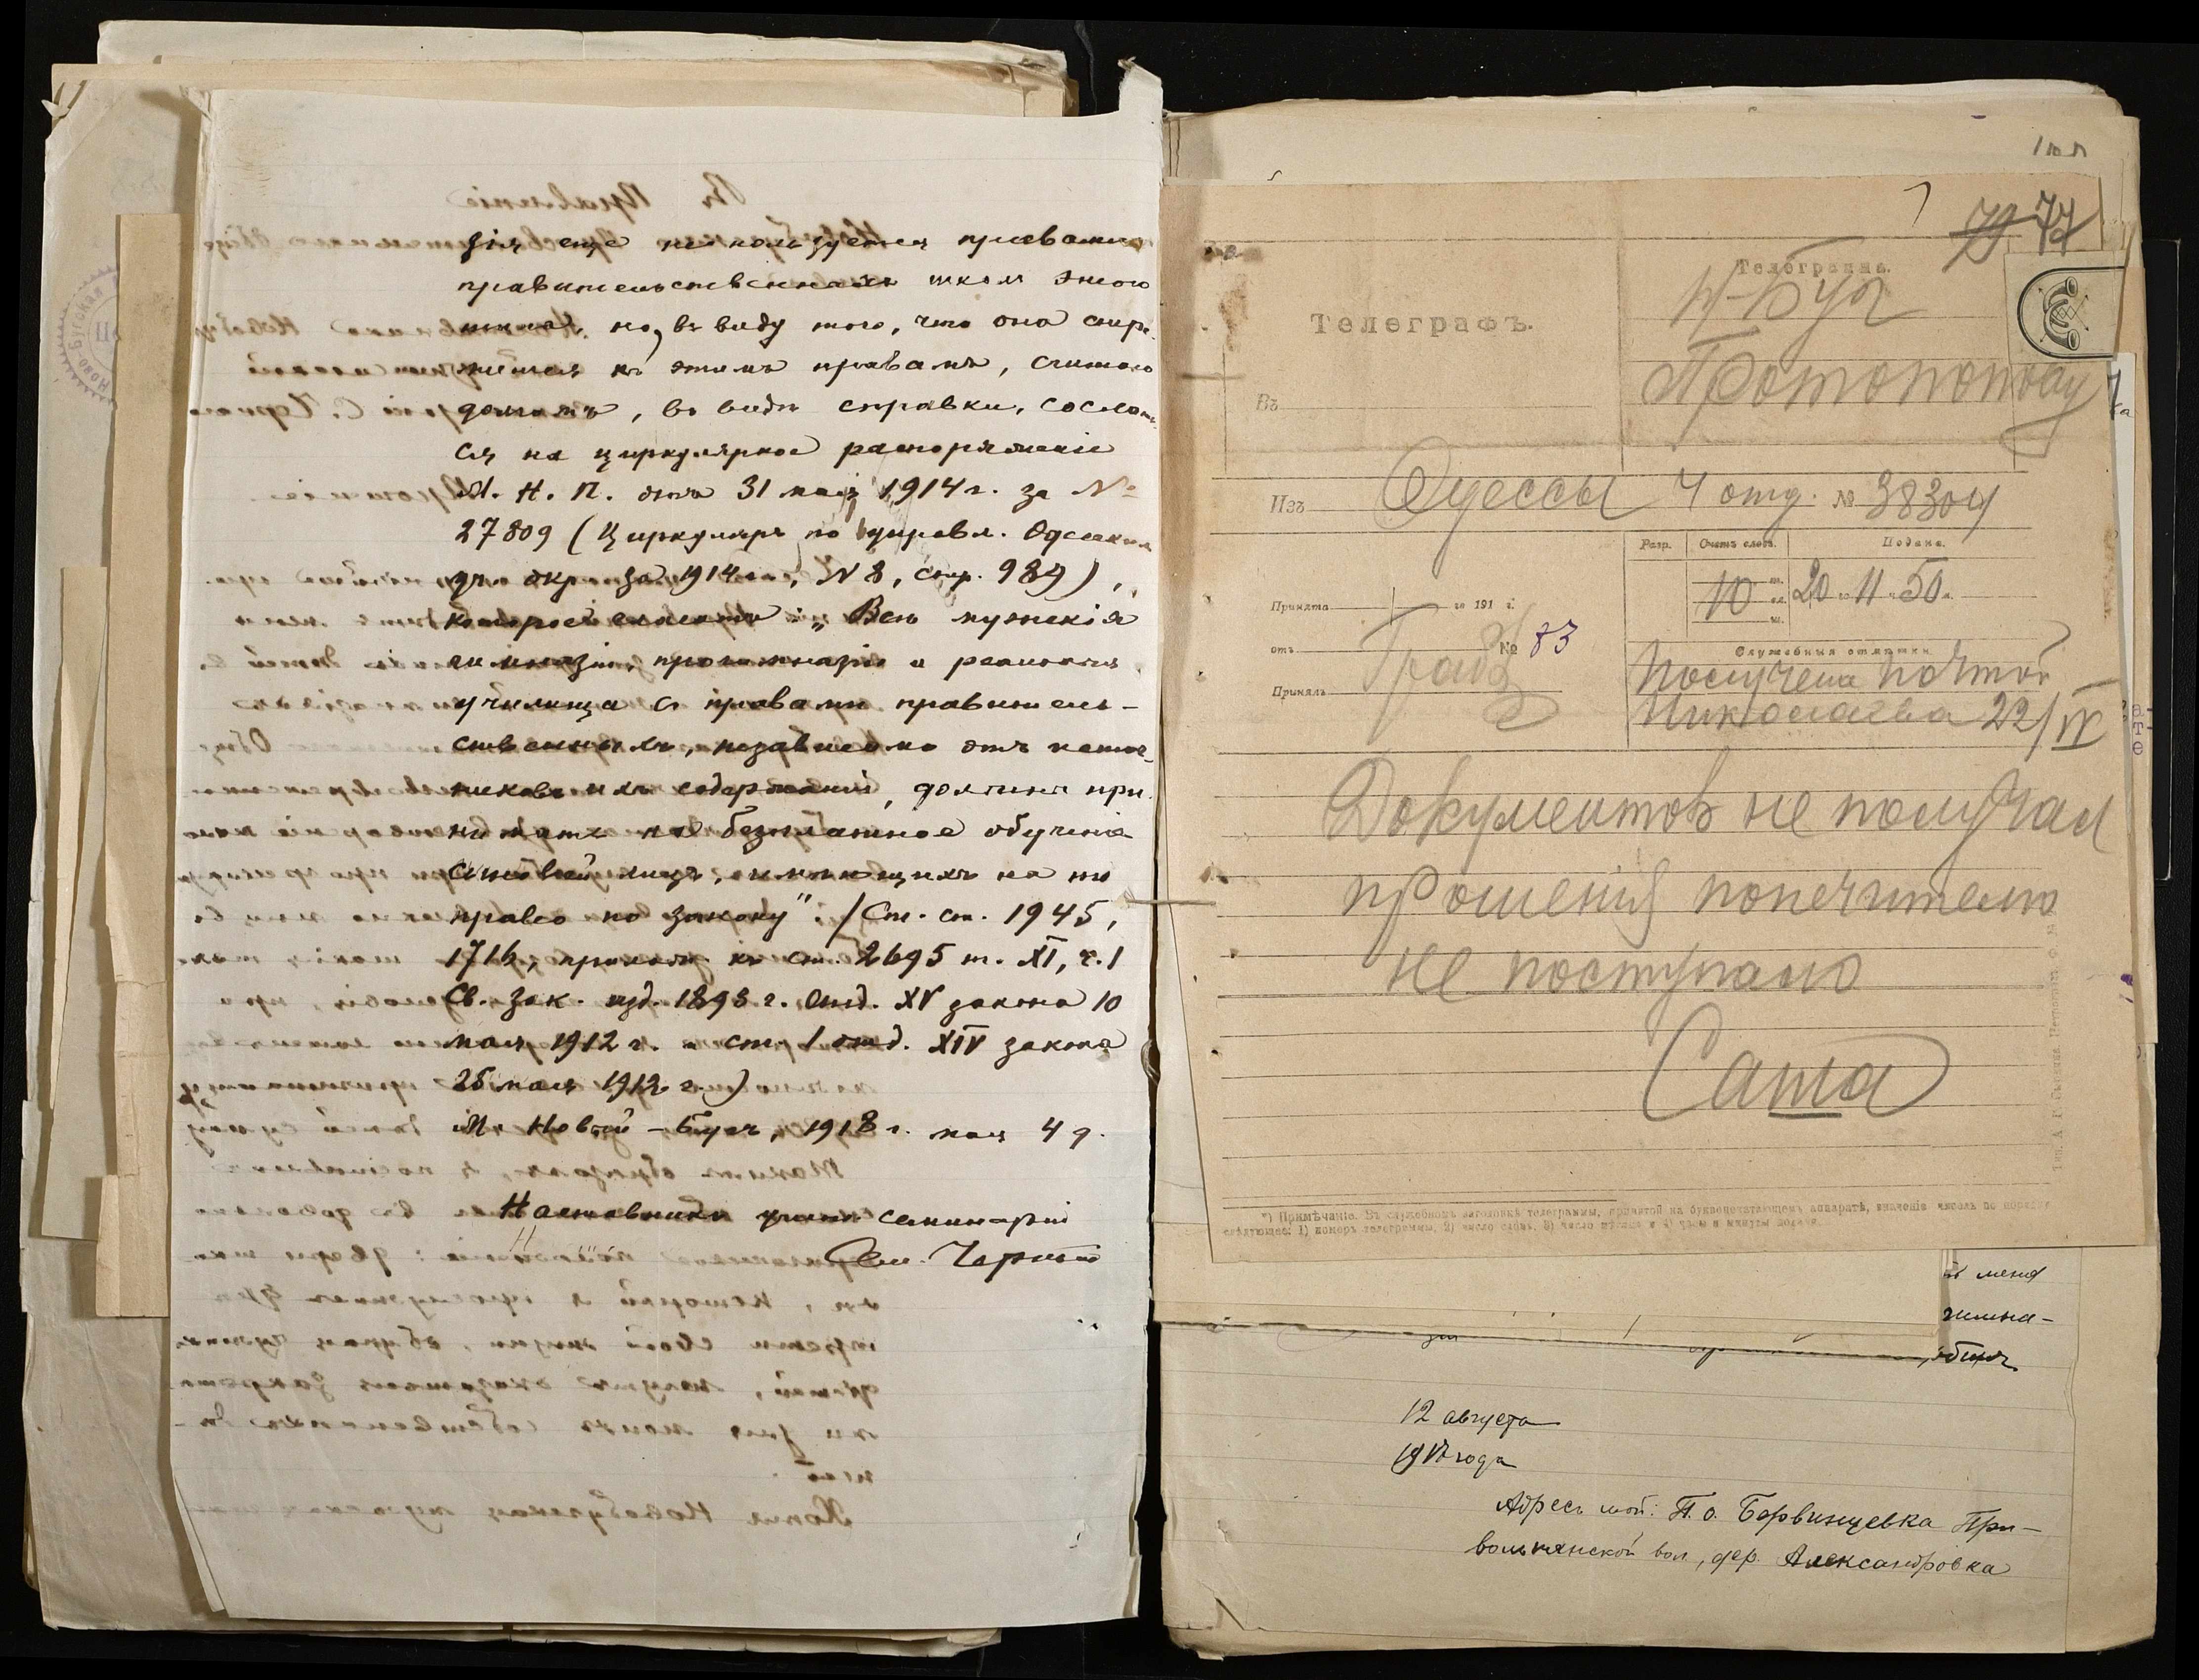 зія еще не пользуется правами
правительственныхъ школъ этого
типа, но, въ виду того, что она стре-
мится къ этимъ правамъ, считаю
долгомъ, въ видѣ справки, сослать-
ся на циркулярное распоряженіе
М. Н. П. отъ 31 мая 1914 г. за №
27809 (Циркуляръ по управл. Одесскимъ
уч. окр. за 1914 г., № 8, стр. 984),
которое гласитъ: „Всѣ мужскія
гимназіи, прогимназіи и реальныя
училища съ правами правитель-
ственныхъ, независимо отъ источ-
никовъ ихъ содержанія, должны при-
нимать на безплатное обученіе
сыновей лицъ, имѣющихъ на то
право по закону" (Ст. ст. 1945,
1716, примѣч. къ ст. 2695 т. XI, ч. 1
Св. Зак. изд. 1893 г. Отд. XV закона 10
мая 1912 г. и ст. 1 отд. XIV закона
26 мая 1912 г.)
М. Новый-Бугъ, 1918 г. мая 4 д.
Наставникъ учит. семинаріи
Сем. Черный
77
Телеграмма.
Н-Бугъ
Протопопову
Телеграфъ.
Въ
Изъ Одессы 4 отд. № 38304
Разр. Счетъ словъ. Подана.
10 20 11 ч 50 м.
Принята го 191 г.
отъ № 83
Принялъ
Служебныя отмѣтки
Получена почтой
Николаева 22/IV
Документов не получал
прошенія попечителю
не поступало
Саша
*) Примѣчаніе. Въ служебномъ заголовкѣ телеграммы, принятой на буквопечатающемъ аппаратѣ, значенія чиселъ по порядку
слѣдующее: 1) номеръ телеграммы, 2) число словъ, 3) число мѣсяца и 4) часы и минуты подачи.
меня
12 августа
1917 года
Адресъ мой: П. о. Барвинцевка При-
вольнянской вол., дер. Александровка